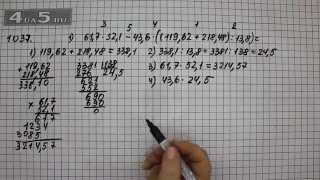 4BA5.RU
3 5 4 1 2
1037. 1) 61,7 · 52,1 - 43,6 · ((119,62 + 218,48) : 13,8) =
1) 119,62 + 218,48 = 338,1
2) 338,1 : 13,8 = 3381 : 138 = 24,5
3) 61,7 · 52,1 = 3214,57
4) 43,6 · 24,5
+ 119,62
218,48
338,10
3381 138
276 24,5
621
552
690
690
0
× 61,7
52,1
617
1234
3085
3214,57